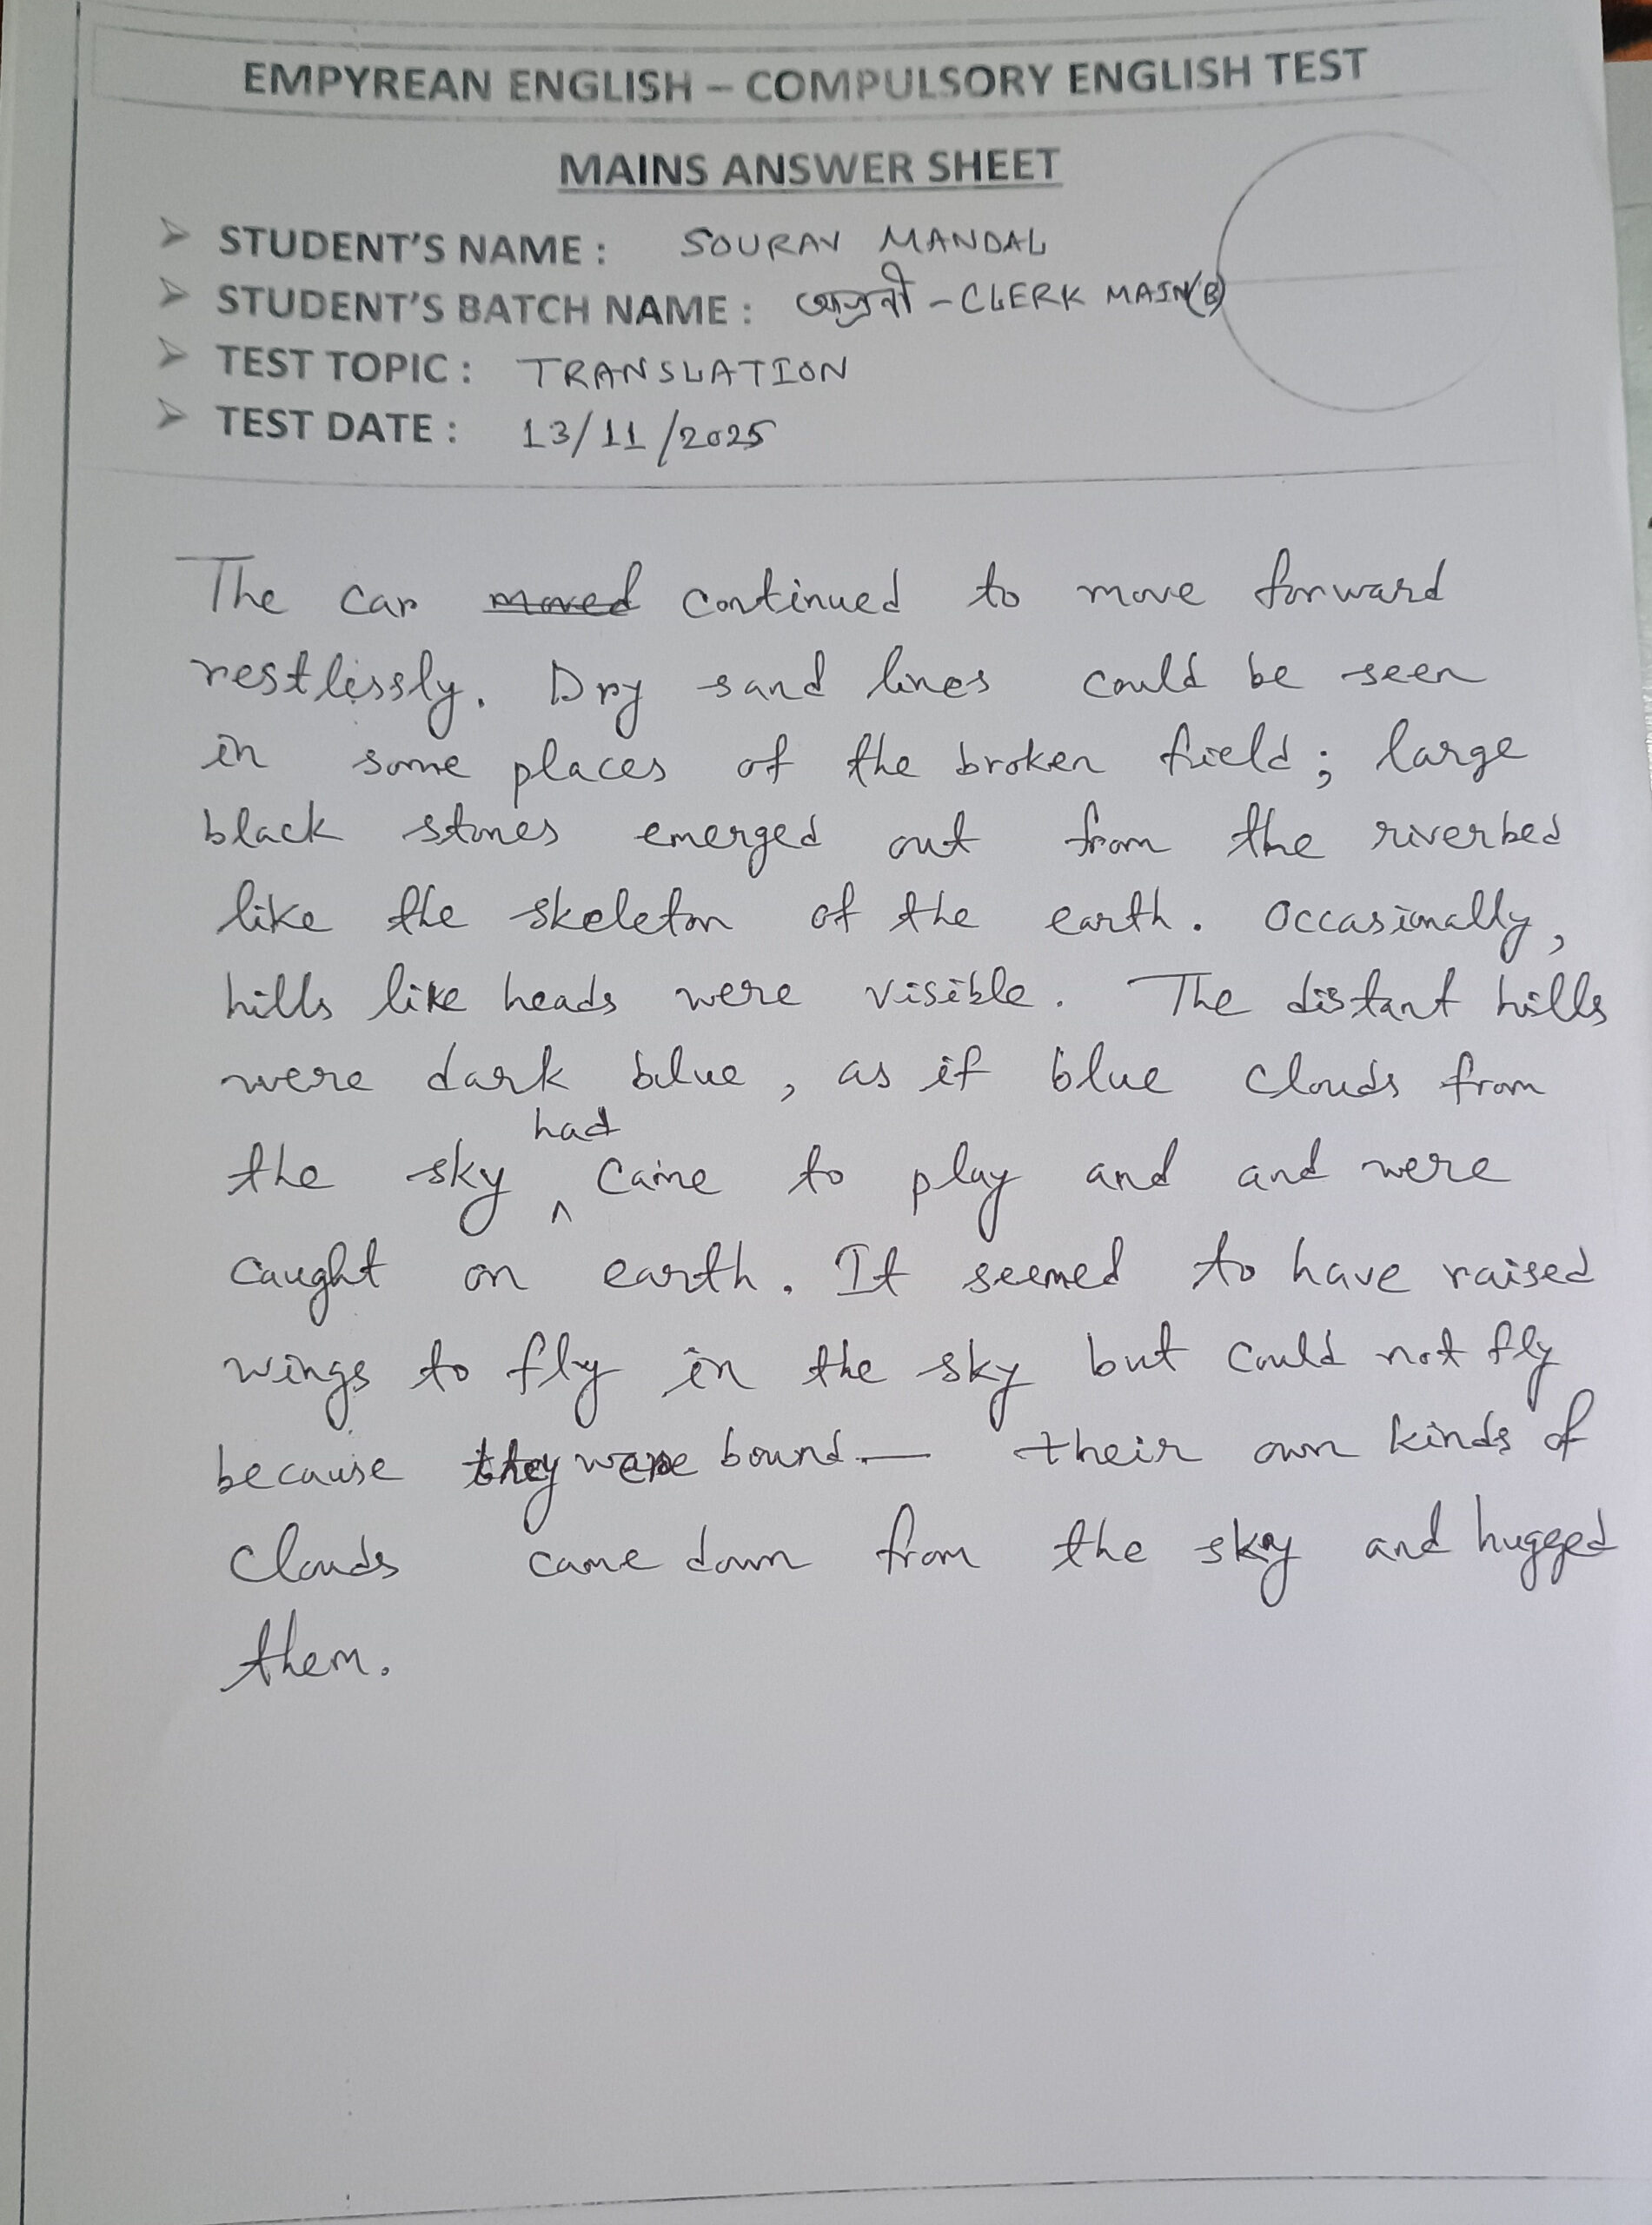 EMPYREAN ENGLISH – COMPULSORY ENGLISH TEST
MAINS ANSWER SHEET
➤ STUDENT'S NAME : SOURAV MANDAL
➤ STUDENT'S BATCH NAME : - CLERK MAIN(B)
➤ TEST TOPIC : TRANSLATION
➤ TEST DATE : 13/11/2025
The car moved continued to move forward
restlessly. Dry sand lines could be seen
in some places of the broken field; large
black stones emerged out from the riverbed
like the skeleton of the earth. Occasionally,
hills like heads were visible. The distant hills
were dark blue, as if blue clouds from
the sky had came to play and and were
caught on earth. It seemed to have raised
wings to fly in the sky but could not fly
because they were bound. — their own kinds of
clouds came down from the sky and hugged
them.